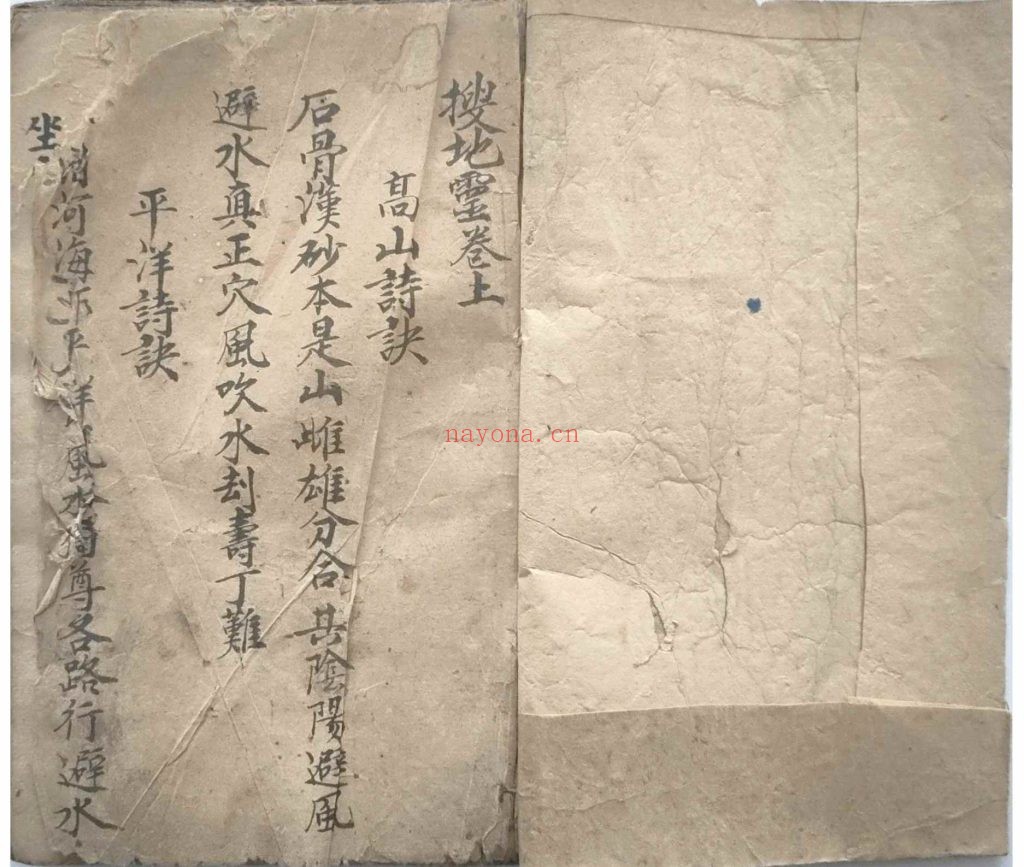 搜地靈卷上
高山詩訣
石骨漢砂本是山雌雄分合共陰陽避風
避水真正穴風吹水刦壽丁難
平洋詩訣
河海 平洋風水 尊各路行避水
坐
nayona.cn